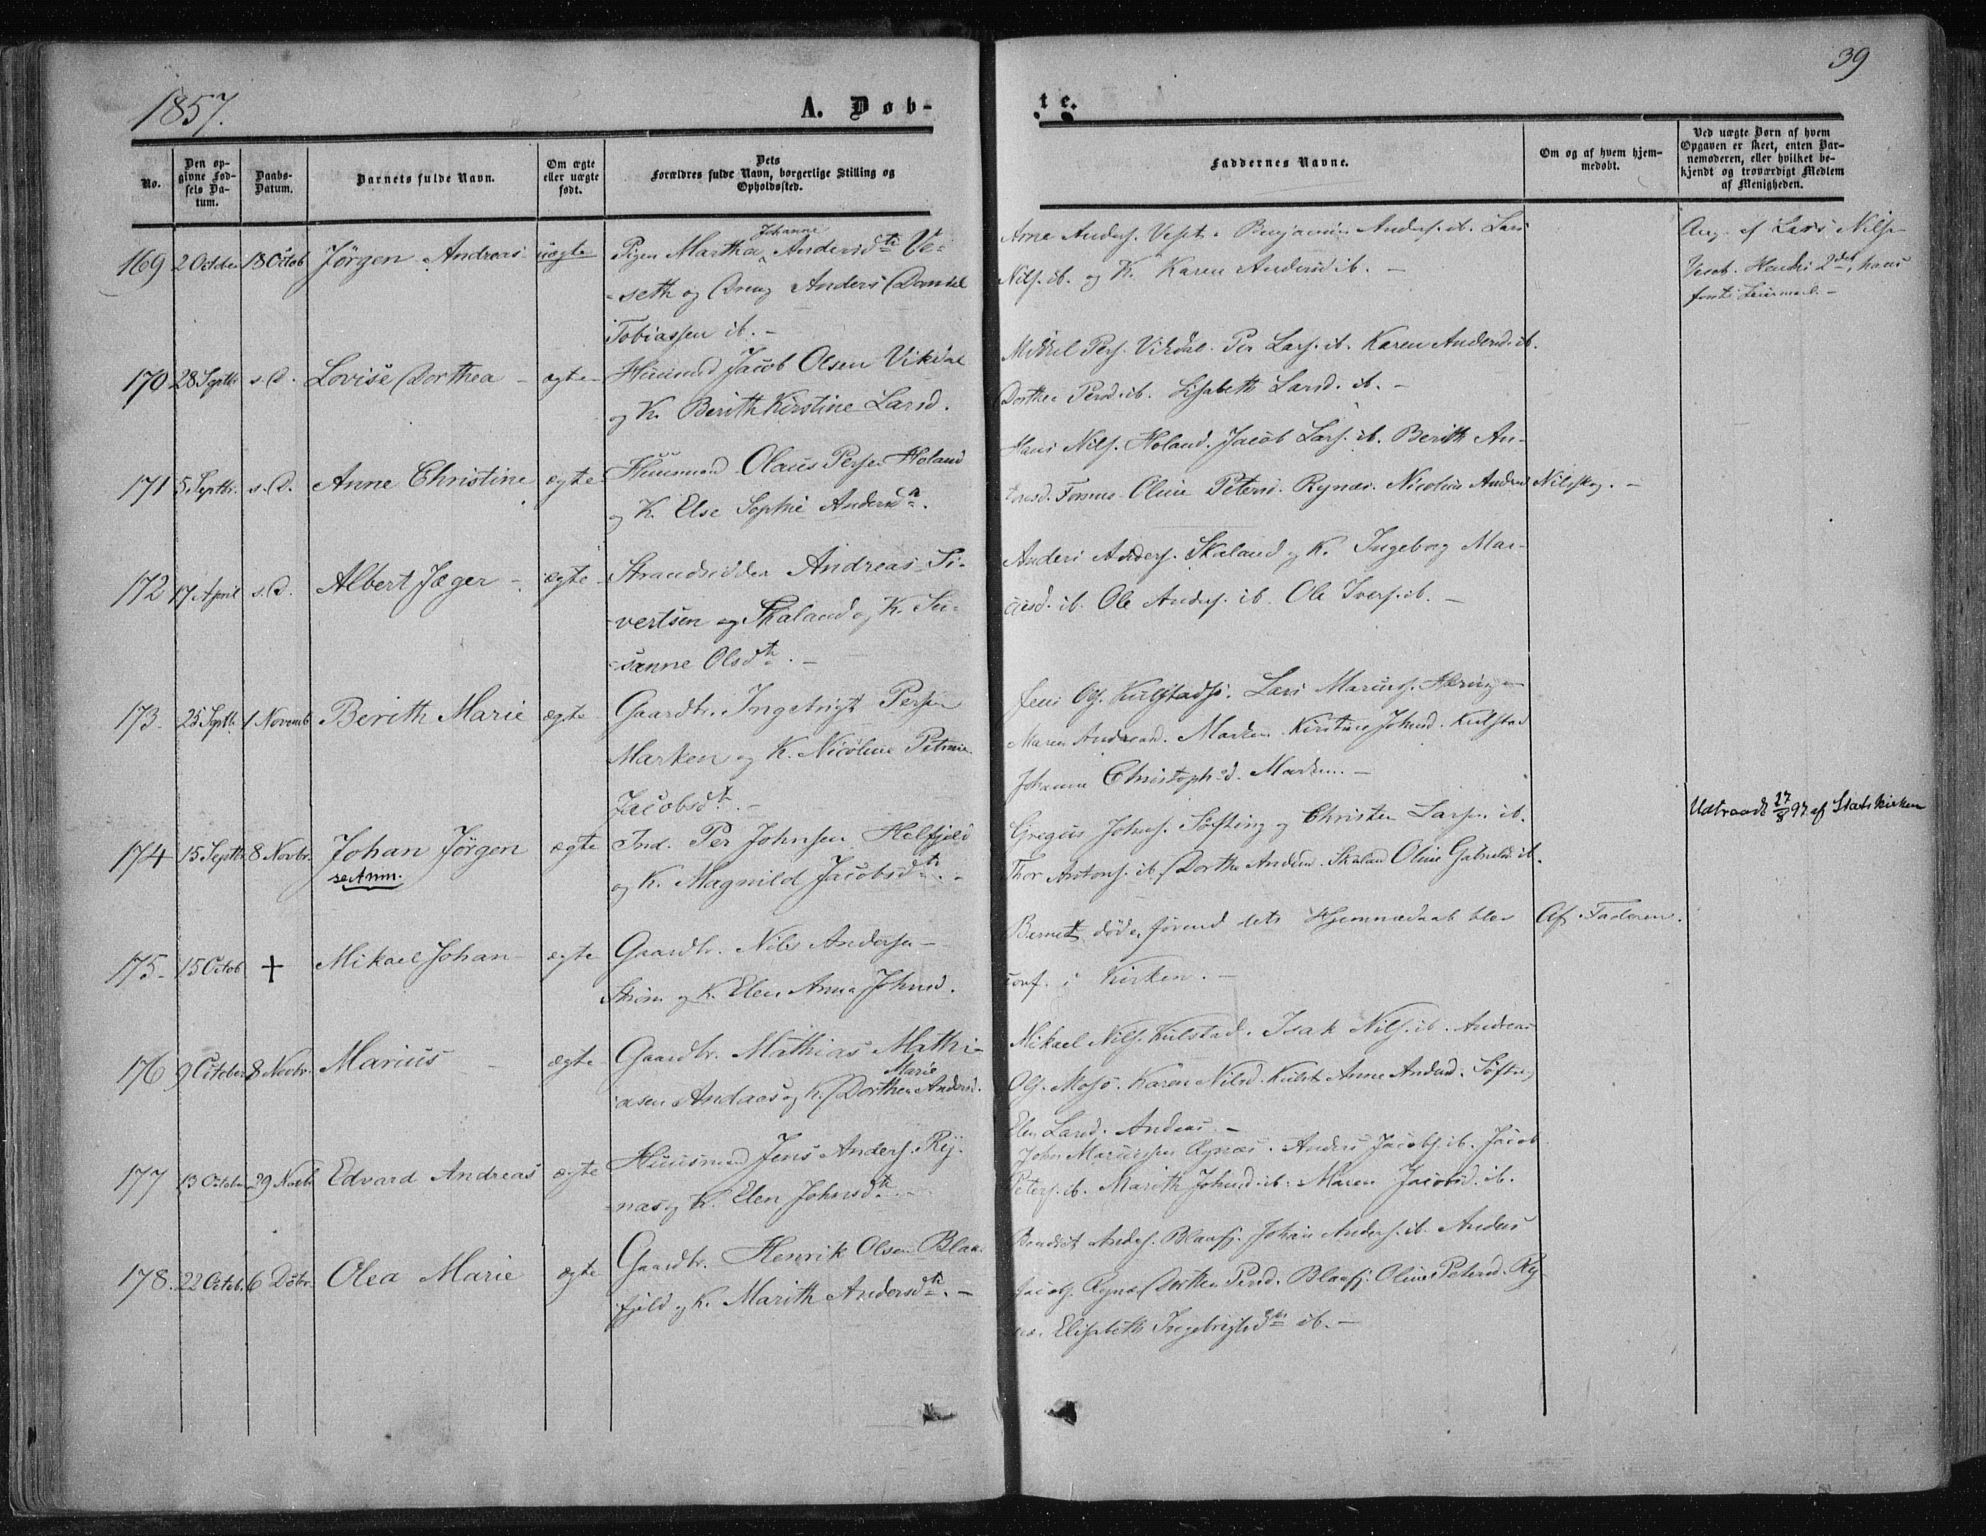 39
1857.
A. Døb-
te.
No.
Den op-
givne Fød-
sels Da-
tum.
Daabs-
Datum.
Barnets fulde Navn.
Om ægte
eller uægte
født.
Dets
Forældres fulde Navn, borgerlige Stilling og
Opholdssted.
Faddernes Navne.
Om og af hvem hjem-
medøbt.
Ved uægte Børn af hvem
Opgaven er skeet, enten Bar-
nemoderen, eller hvilket be-
kjendt og troværdigt Medlem
af Menigheden.
169 2 October 18 Octob Jørgen Andreas uægte
Johanne
Pigen Martha Andersdtr Ve-
-seth og Dreng Anders Daniel
Tobiassen ib. -
Arne Anders. Veset. Benjamin Anders. ib. Lars
Nils. ib. og K. Karen Andersd ib. -
Ang. af Lars Nils-
170 28 Septbr s.D. Lovise Dorthea - ægte
Huusmd Jacob Olsen Vikdal
og K. Berith Kirstine Larsd.
Mikkel Pers. Vikdal. Per Lars. ib. Karen Andersd. ib.
Dorthea Persd. ib. Elisabeth Larsd. ib. -
171 5 Septbr. s.D. Anne Christine ægte
Huusmand Olaus Persen Holand
og K. Else Sophie Andersd.
Hans Nils. Holand. Jacob Lars. ib. Berith An-
Oline Petersd. Rynæs. Nicoline Andersd Nilsskog. -
172 17 April s.D. Albert Jæger - ægte
Strandsidder Andreas Si-
-vertsen og Skaland og K. Su-
-sanne Olsdtr. -
Anders Anders. Skaland og K. Ingeborg Mar-
cusd. ib. Ole Anders. ib. Ole Ivers. ib. -
173. 25 Septbr. 1 Novemb Berith Marie ægte
Gaardbr. Ingebrigt Persen
Marken og K. Nicoline Petrine
Jacobsdtr. -
Jens Ols. Kulstadsj. Lars Marcus. Hering
Maren Andreasd. Marken. Kirstine Johnsd. Kulstad
Johanna Christophsd. Marken. -
174 15 Septbr 8 Novbr. Johan Jørgen ægte
se Anm.
Ind. Per Johnsen Helfjeld
og K. Magnild Jacobsdtr. -
Gregus Johns. Søfting og Christen Larsen ib.
Thor Antons. ib. Dorthe Andersd. Skaland Oline Gabrielsd. ib.
Udtraadt 27/8 97 af Statskirken
175. 15 Octob + Mikael Johan - ægte
Gaardbr. Nils Andersen -
Strøm og K. Elen Anna Johnsd.
Barnet døde, førend dets Hjemmedaab blev
conf. i Kirken. -
Af Faderen.
176 9 October 8 Novbr. Marius - ægte
Gaardbr. Mathias Mathi-
Marie
asen Andaas og K. Dorthea Andersd.
Mikael Nils. Kulstad. Isak Nils. ib. Andreas
Ols. Mosø. Karen Nilsd. Kulst. Anne Andersd. Søfting
Elen Larsd. Andaas. -
177 13 October 29 Novb Edvard Andreas ægte
Huusmand Jens Anders. Ry-
-næs og K. Elen Johnsdtr. -
John Marcussen Rynæs. Anders Jacobs. ib. Jacob
Peters. ib. Marith Johnsd. ib. Maren Jacobsd. ib.
178. 22 Octob. 6 Dcbr. Olea Marie ægte
Gaardbr. Henrik Olsen Blaa-
fjeld og K. Marith Andersdtr. -
Bendict Anders. Blaafj. Johan Anders. ib. Anders
Jacobs. Rynæs Dorthea Persd. Blaafj. Oline Petersd. Ry-
næs. Elisabeth Ingebrigtsdtr ib. -